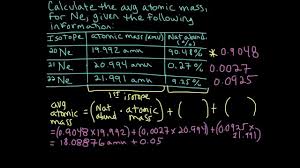 Calculate the avg atomic mass
for Ne, given the following
information:
Isotope atomic mass (amu) Nat abund. %
20 Ne 19.992 amu 90.48% * 0.9048
21 Ne 20.994 amu 0.27% 0.0027
22 Ne 21.991 amu 9.25% 0.0925
1st isotope
avg atomic mass = (Nat abund • atomic mass) + ( ) + ( )
= (0.9048 x 19.992) + (0.0027 x 20.994) + (0.0925 x 21.991)
= 18.08876 amu + 0.05